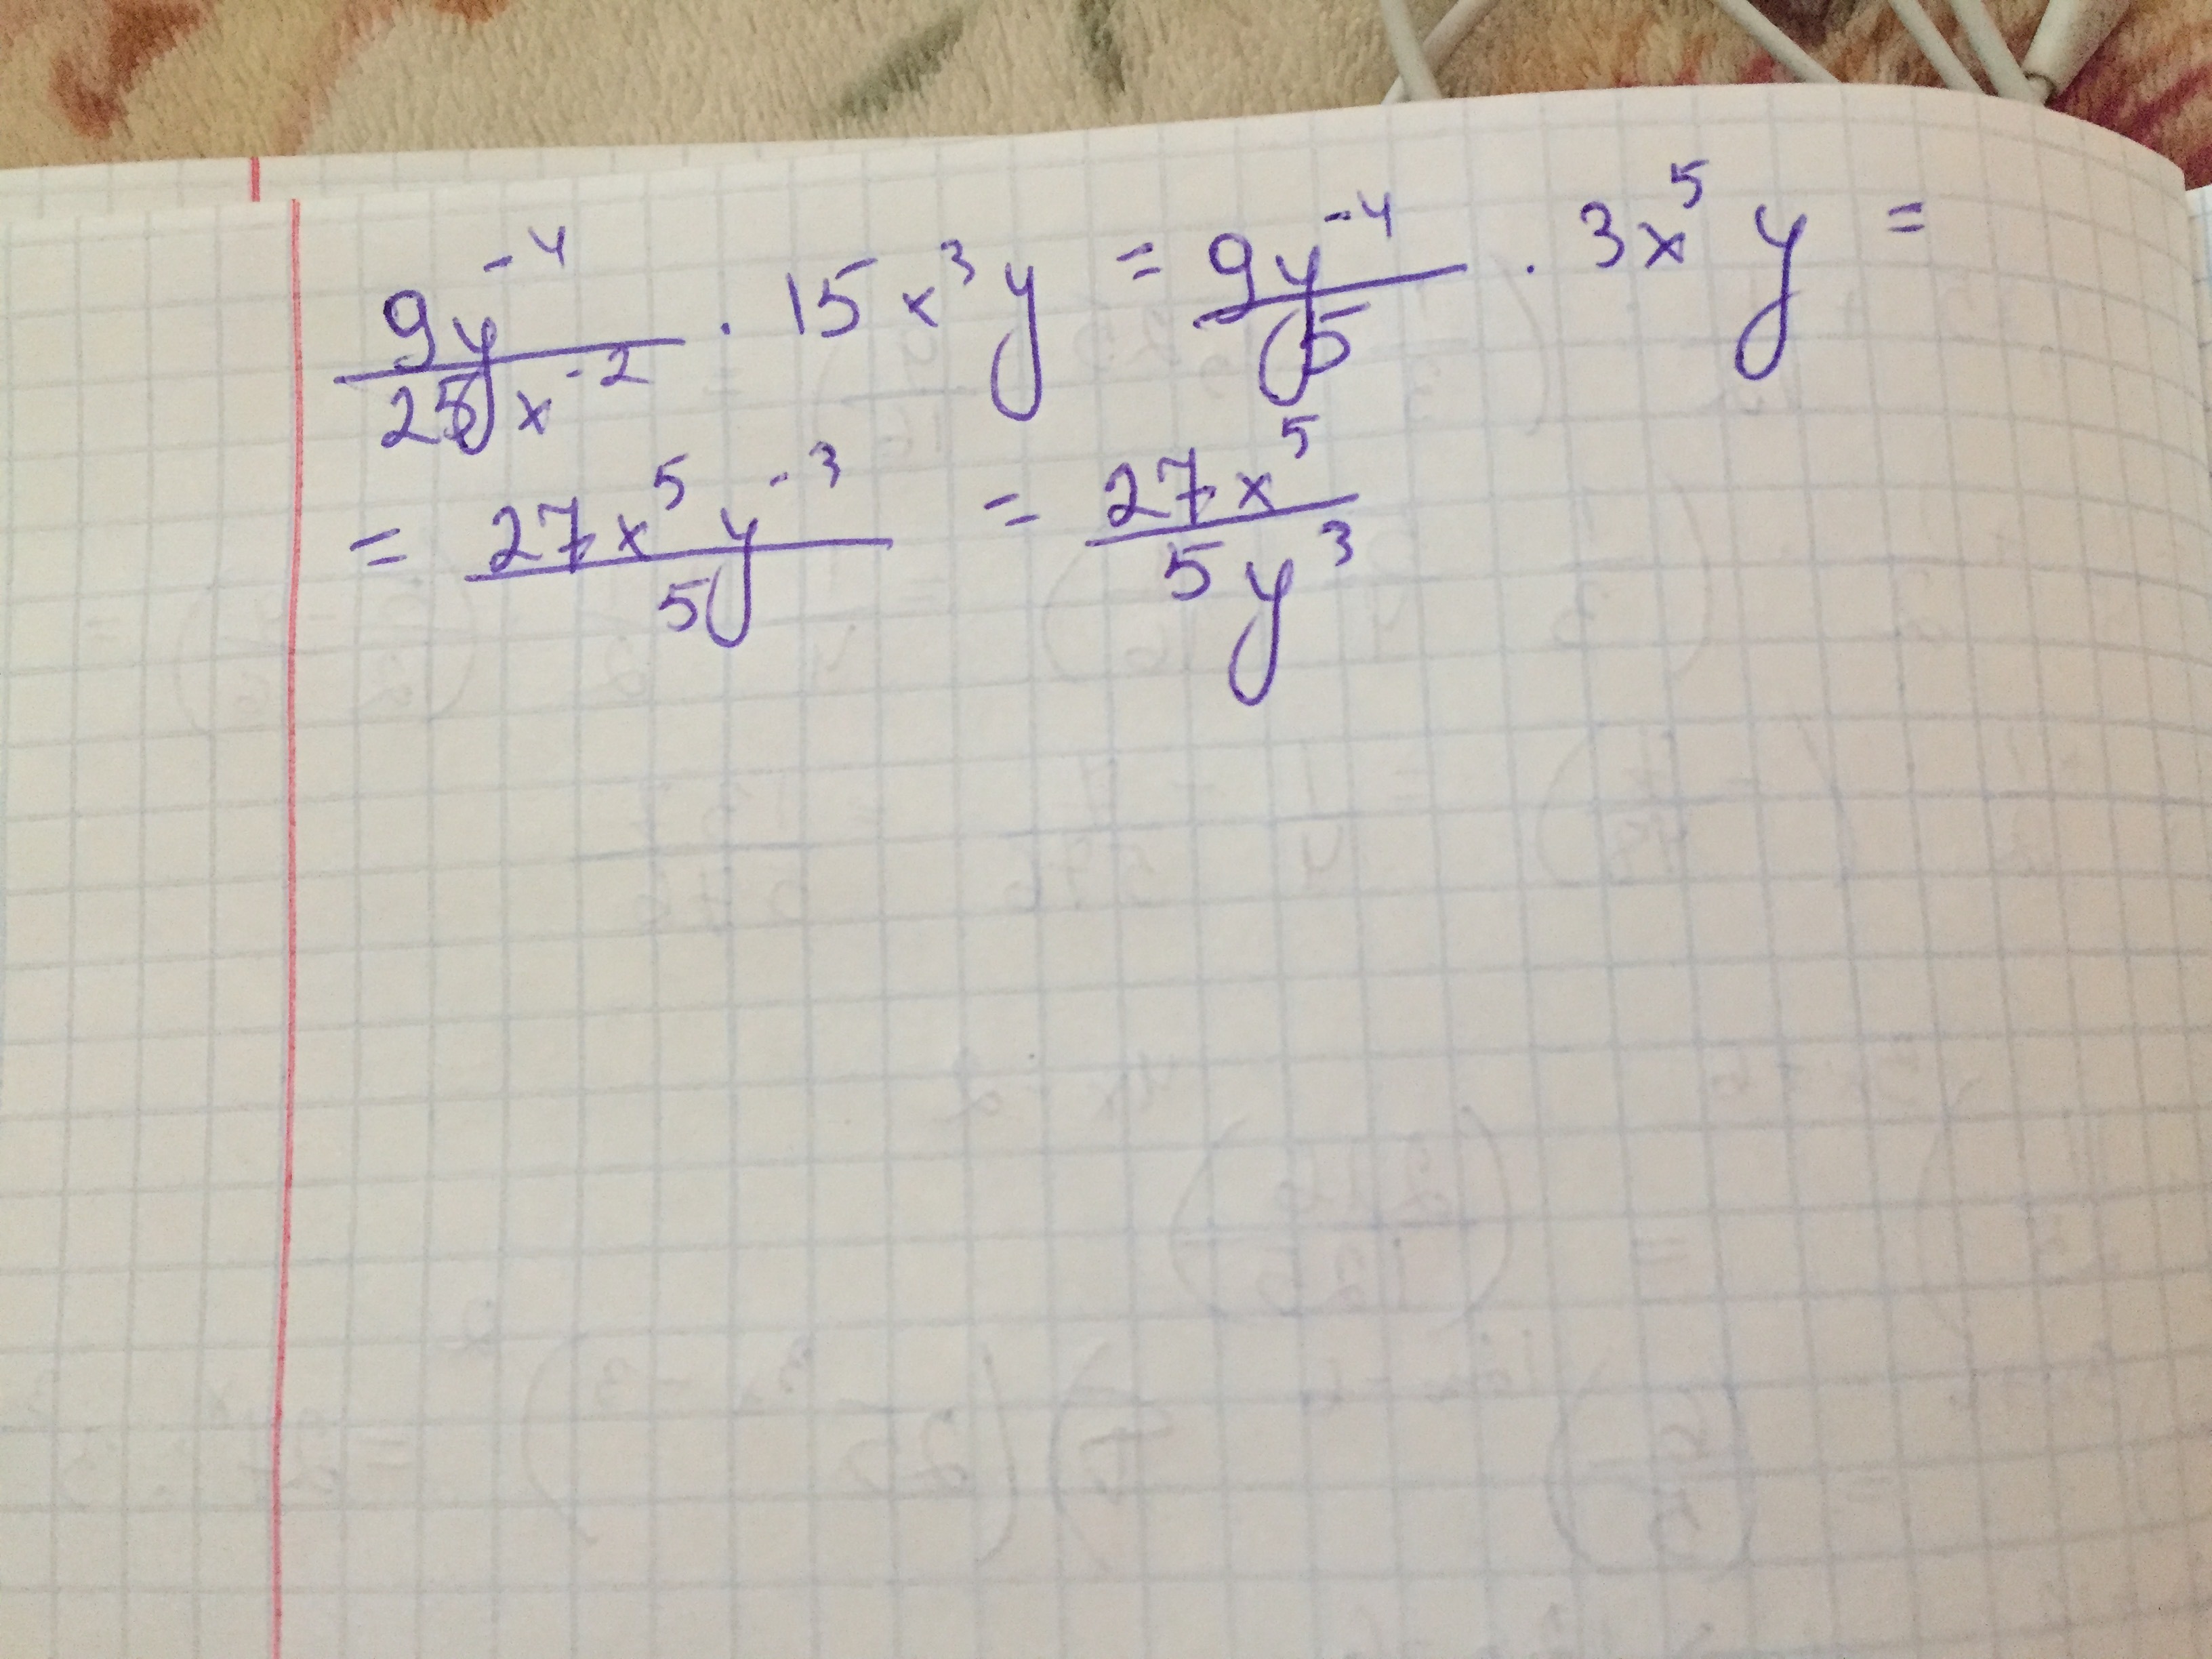 9y⁻⁴/25x⁻² · 15x³y = 9y⁻⁴/5 · 3x⁵y =
= 27x⁵y⁻³/5 = 27x⁵/5y³